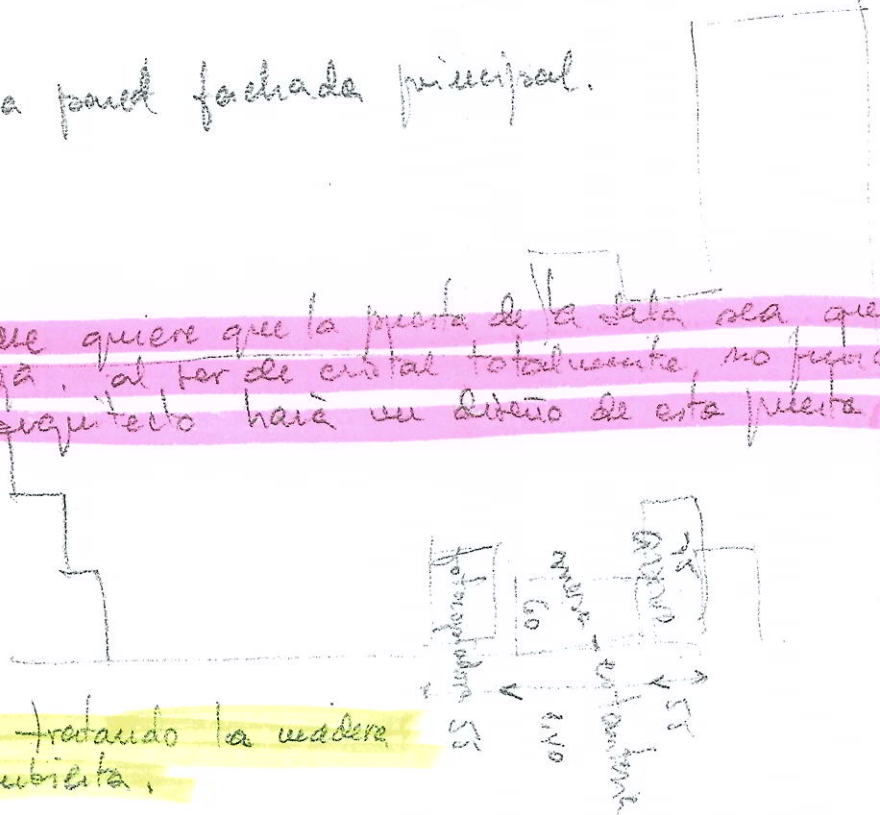 a pared fachada principal.
que quiere que la puerta de la sala sea que
al ser de cristal totalmente, no
arquitecto hará un diseño de esta puerta
tratando la madera
cubierta.
fotocopiadora 55
60
mesa - estantería
55